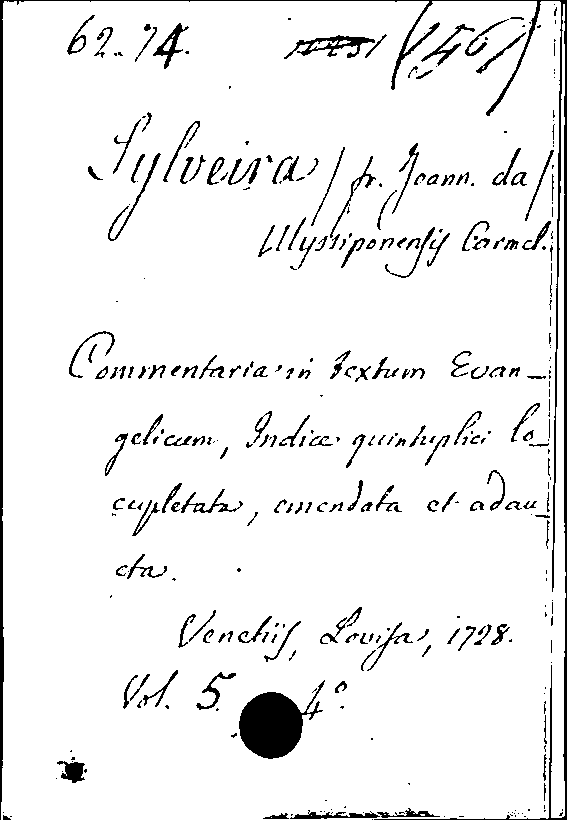 62.74. (1561)
Sylveira / fr. Joann. da /
Ulyssiponensis Carmel.
Commentaria in textum Evan-
gelicum, Indice quintuplici lo-
cupletata, emendata et adau-
cta.
Venetiis, Lovisa, 1728.
Vol. 5. 4º.